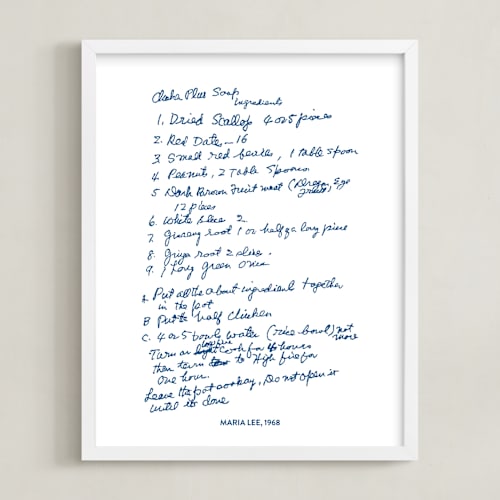 Plus Soup
Ingredients
1. Dried Scallop 4 or 5 pieces
2. Red Dates - 16
3. Small red beans, 1 table spoon
4. Peanuts, 2 Table Spoons
5 Dark Brown Fruit meat (Dragon Eye
fruit)
12 pieces
6. White 2
7. root 1 or half of a long piece
8. root 2 slices.
9. 1 Long green onion
A. Put all the about ingredient together
in the pot
B Put half chicken
C. 4 or 5 bowls water (rice bowl) not
more
low fire
Turn on light cook for 4 hours
then turn to High fire for
One hour.
Leave the pot, Do not open it
until its done
MARIA LEE, 1968